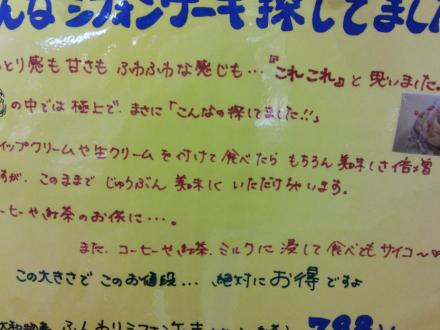 んな シフォンケーキ 探してました
とり感も 甘さも ふわふわな 感じも…『これこれ』と 思いました。
の中では 極上で、まさに「こんなの探してました!!」
イップクリームや 生クリームを 付けて 食べたら もちろん 美味しさ 倍増
すが、このままで じゅうぶん 美味しく いただけちゃいます。
ーヒーや紅茶の お供に…。
また、コーヒーや紅茶、ミルクに 浸して 食べても サイコ〜
この大きさで このお値段… 絶対に お得 ですよ
ふんわりシフォンケーキ
788